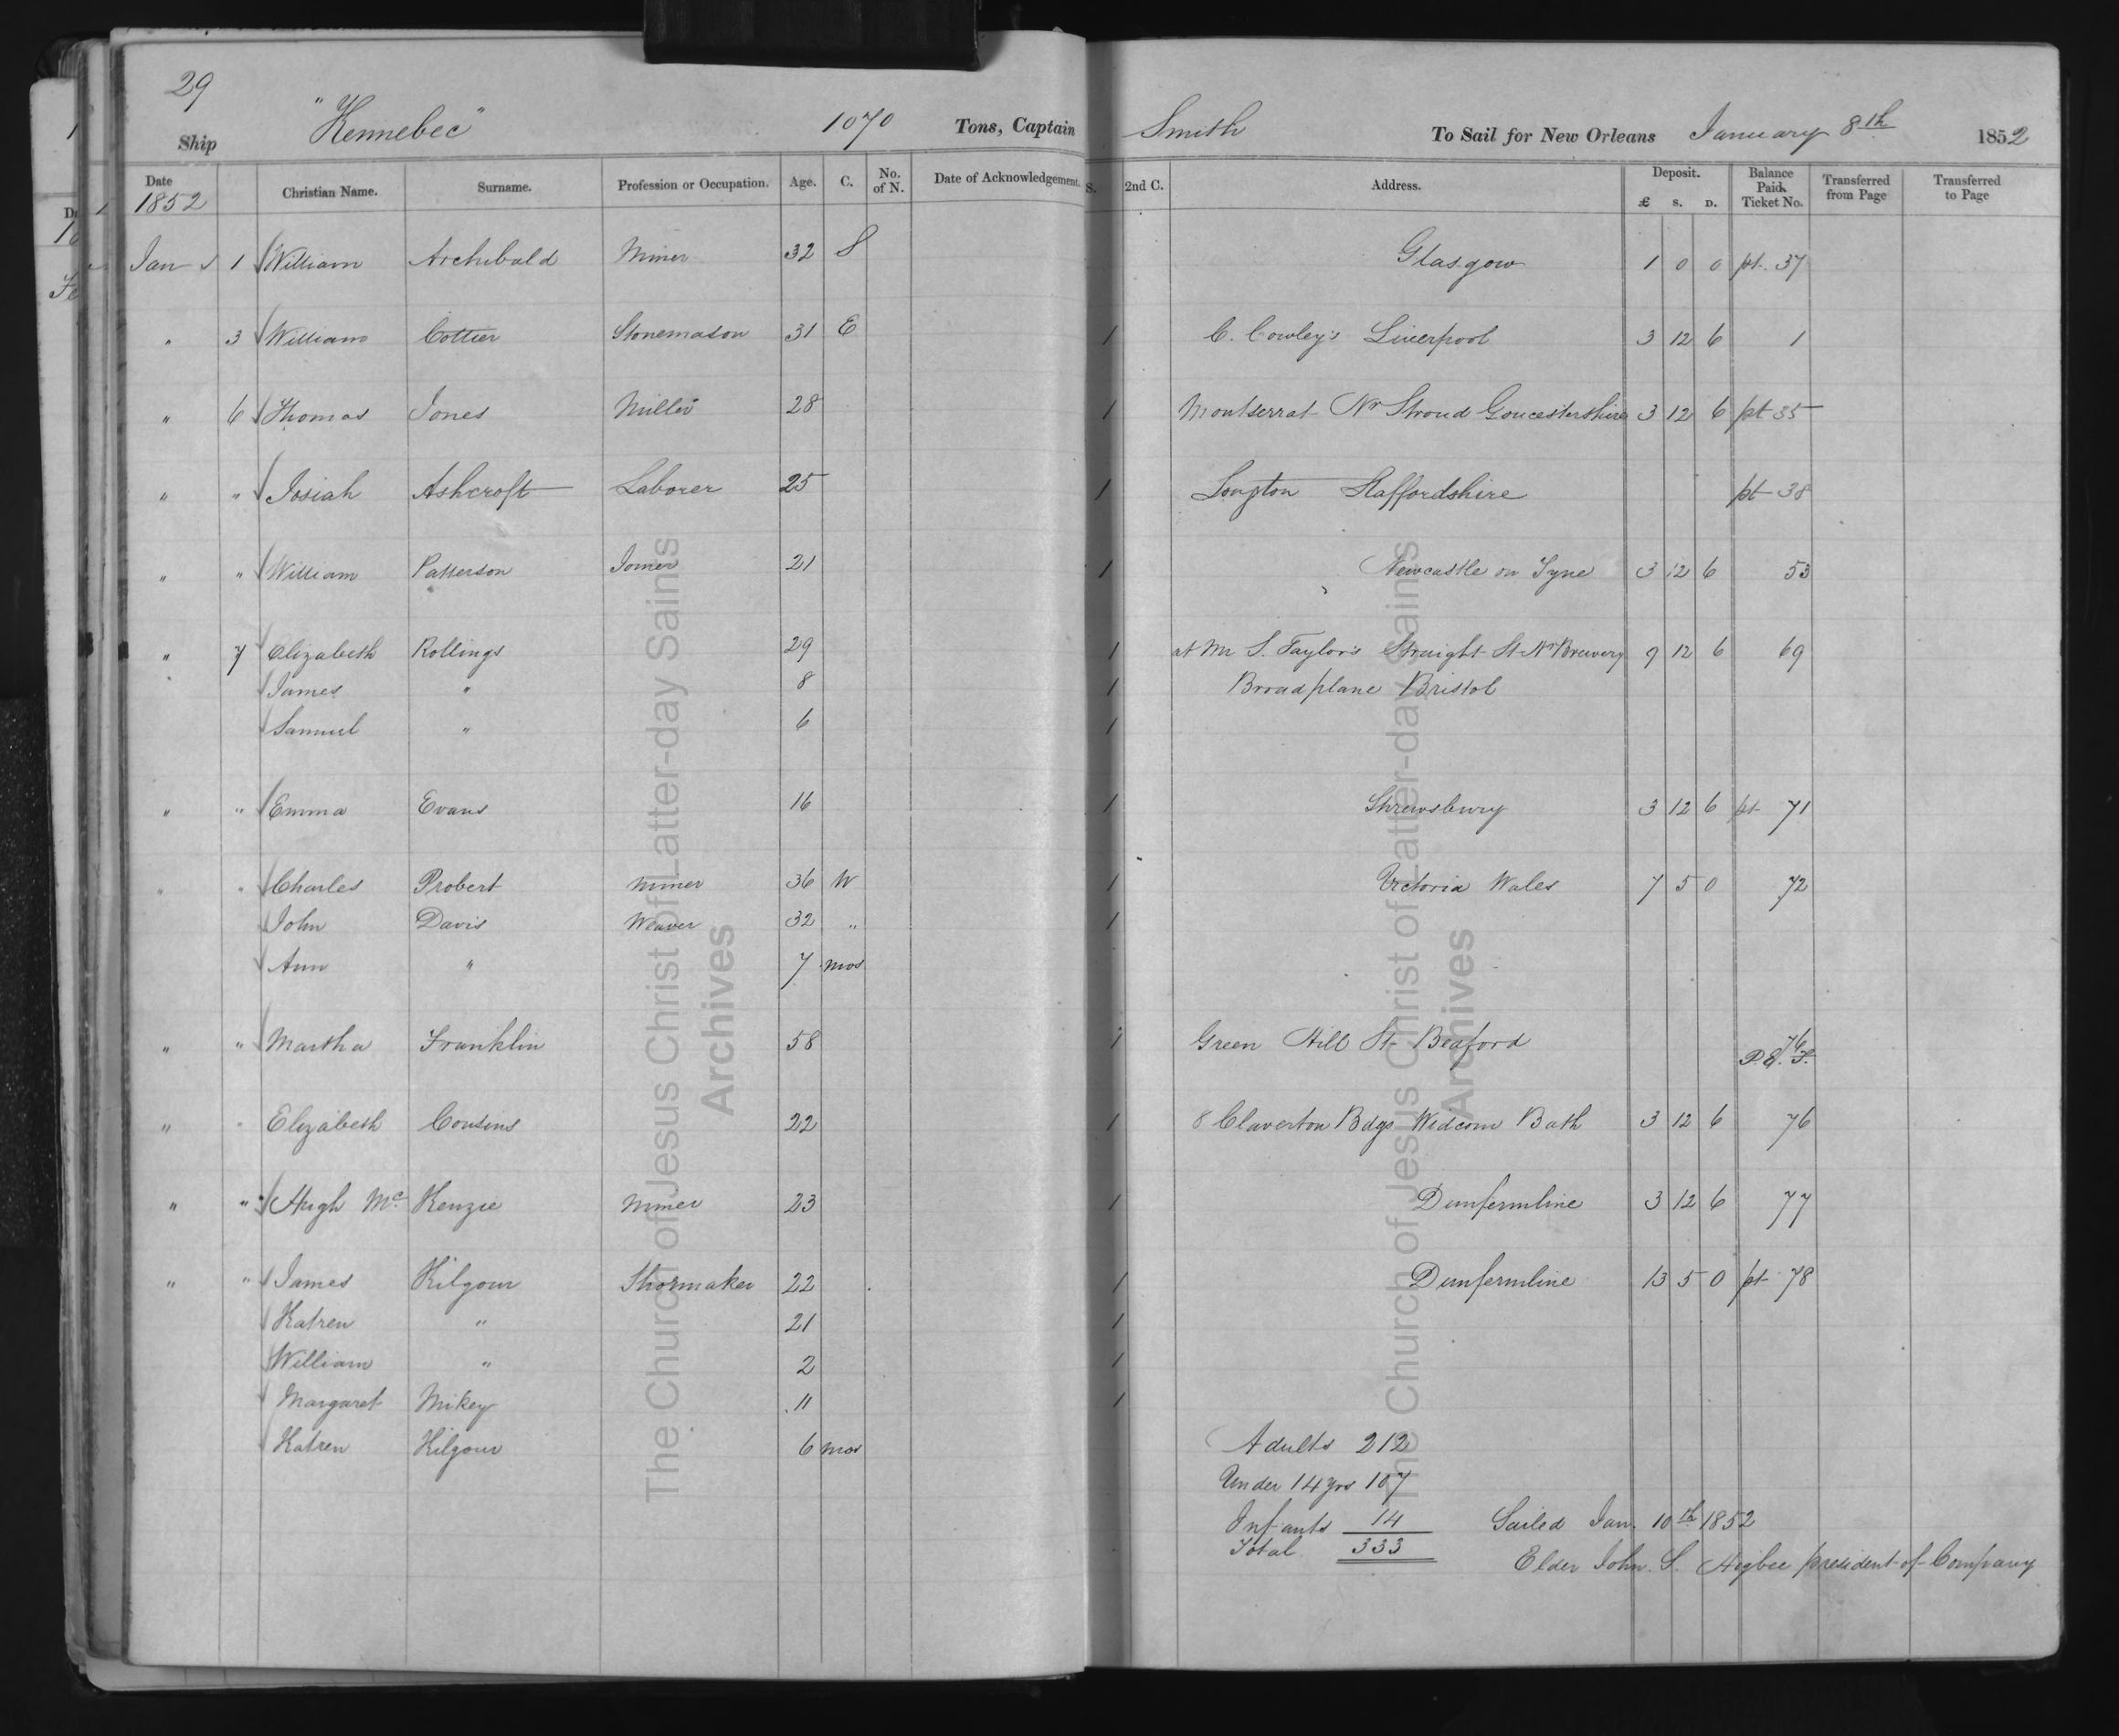 29
Ship "Kennebec" 1070 Tons, Captain Smith To Sail for New Orleans January 8th 1852
Date 1852 Christian Name. Surname. Profession or Occupation. Age. C. No. of N. Date of Acknowledgement. S. 2nd C. Address. Deposit. £ S. D. Balance Paid. Ticket No. Transferred from Page Transferred to Page
Jan 1 William Archibald Miner 32 S Glasgow 1 0 0 pt. 37
" 3 William Cottier Stonemason 31 E 1 C. Cowley's Liverpool 3 12 6 1
" 6 Thomas Jones Miller 28 1 Montserrat Nr Stroud Goucestershire 3 12 6 pt 35
" " Josiah Ashcroft Laborer 25 1 Longton Staffordshire pt 38
" " William Patterson Joiner 21 1 Newcastle on Tyne 3 12 6 53
" 7 Elizabeth Rollings 29 1 at Mr S. Taylor's Straight St Nr Brewery 9 12 6 69
James " 8 1 Broadplane Bristol
Samuel " 6 1
" " Emma Evans 16 1 Shrewsbury 3 12 6 pt 71
" " Charles Probert Miner 36 W 1 Victoria Wales 7 5 0 72
John Davis Weaver 32 " 1
Ann " 7 mos
" " Martha Franklin 58 1 Green Hill St Beaford 76 P.E.F.
" " Elizabeth Cousins 22 1 8 Claverton Bdgs Widcom Bath 3 12 6 76
" " Hugh Mc Kenzie Miner 23 1 Dunfermline 3 12 6 77
" " James Kilgour Shoemaker 22 1 Dunfermline 13 5 0 pt 78
Katren " 21 1
William " 2 1
Margaret Mikey 11 1
Katren Kilgour 6 mos
Adults 212
Under 14 yrs 107
Infants 14 Sailed Jan. 10th 1852
Total 333
Elder John S. Higbee president of Company
The Church of Jesus Christ of Latter-day Saints
Archives
The Church of Jesus Christ of Latter-day Saints
Archives